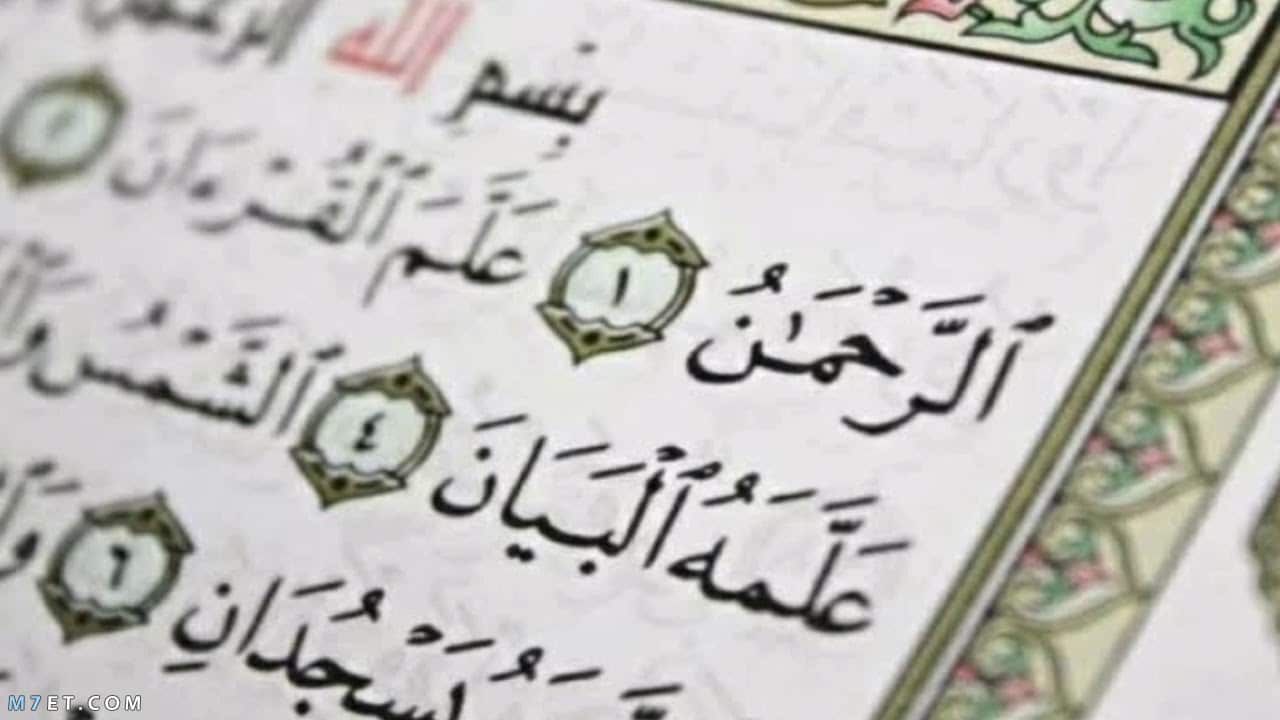 بِسْمِ اللَّهِ الرَّحْمَ
ٱلرَّحْمَٰنُ ١ عَلَّمَ ٱلْقُرْءَانَ ٢
عَلَّمَهُ ٱلْبَيَانَ ٤ ٱلشَّمْسُ
يَسْجُدَانِ ٦
M7ET.COM